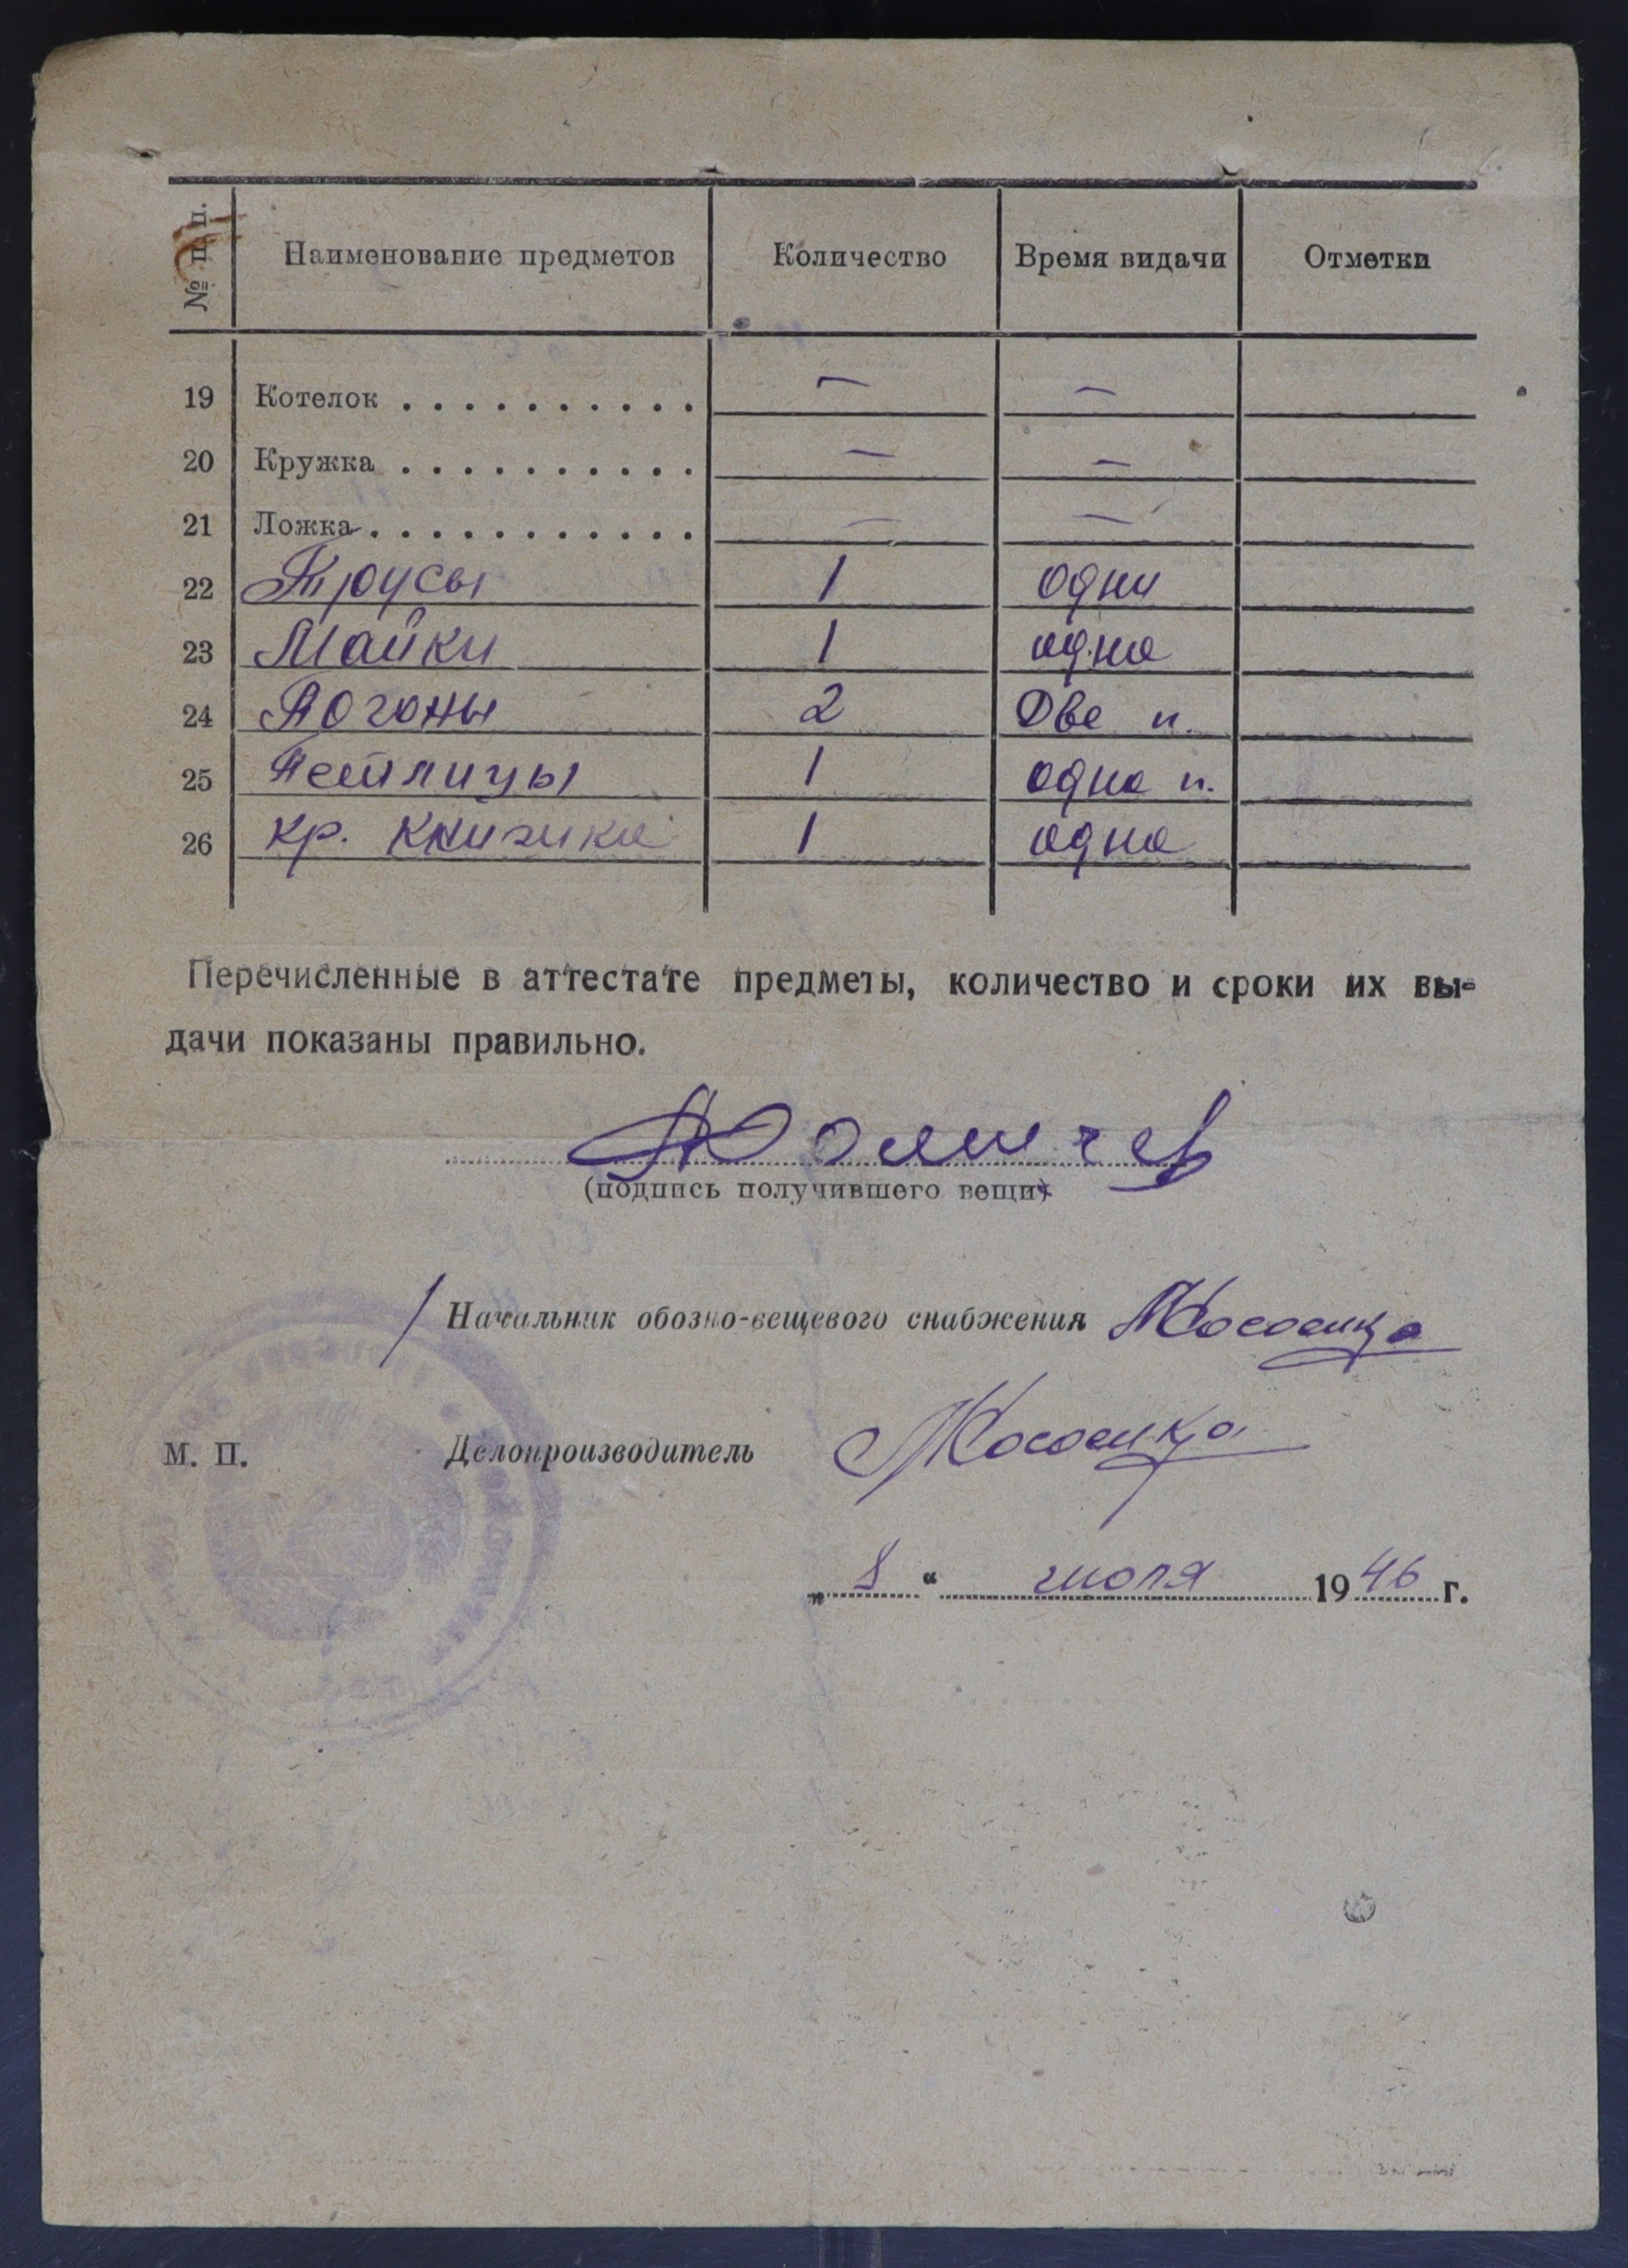 № п. п. Наименование предметов Количество Время видачи Отметки
19 Котелок . . . . . . . . . . — —
20 Кружка . . . . . . . . . . — —
21 Ложка . . . . . . . . . . . — —
22 Трусы 1 одни
23 Майки 1 одна
24 Погоны 2 Две п.
25 Петлицы 1 одна п.
26 Кр. Книжка 1 одна
Перечисленные в аттестате предметы, количество и сроки их вы-
дачи показаны правильно.
(подпись получившего вещи)
Начальник обозно-вещевого снабжения
М. П. Делопроизводитель
„ 8 “ июля 1946 г.